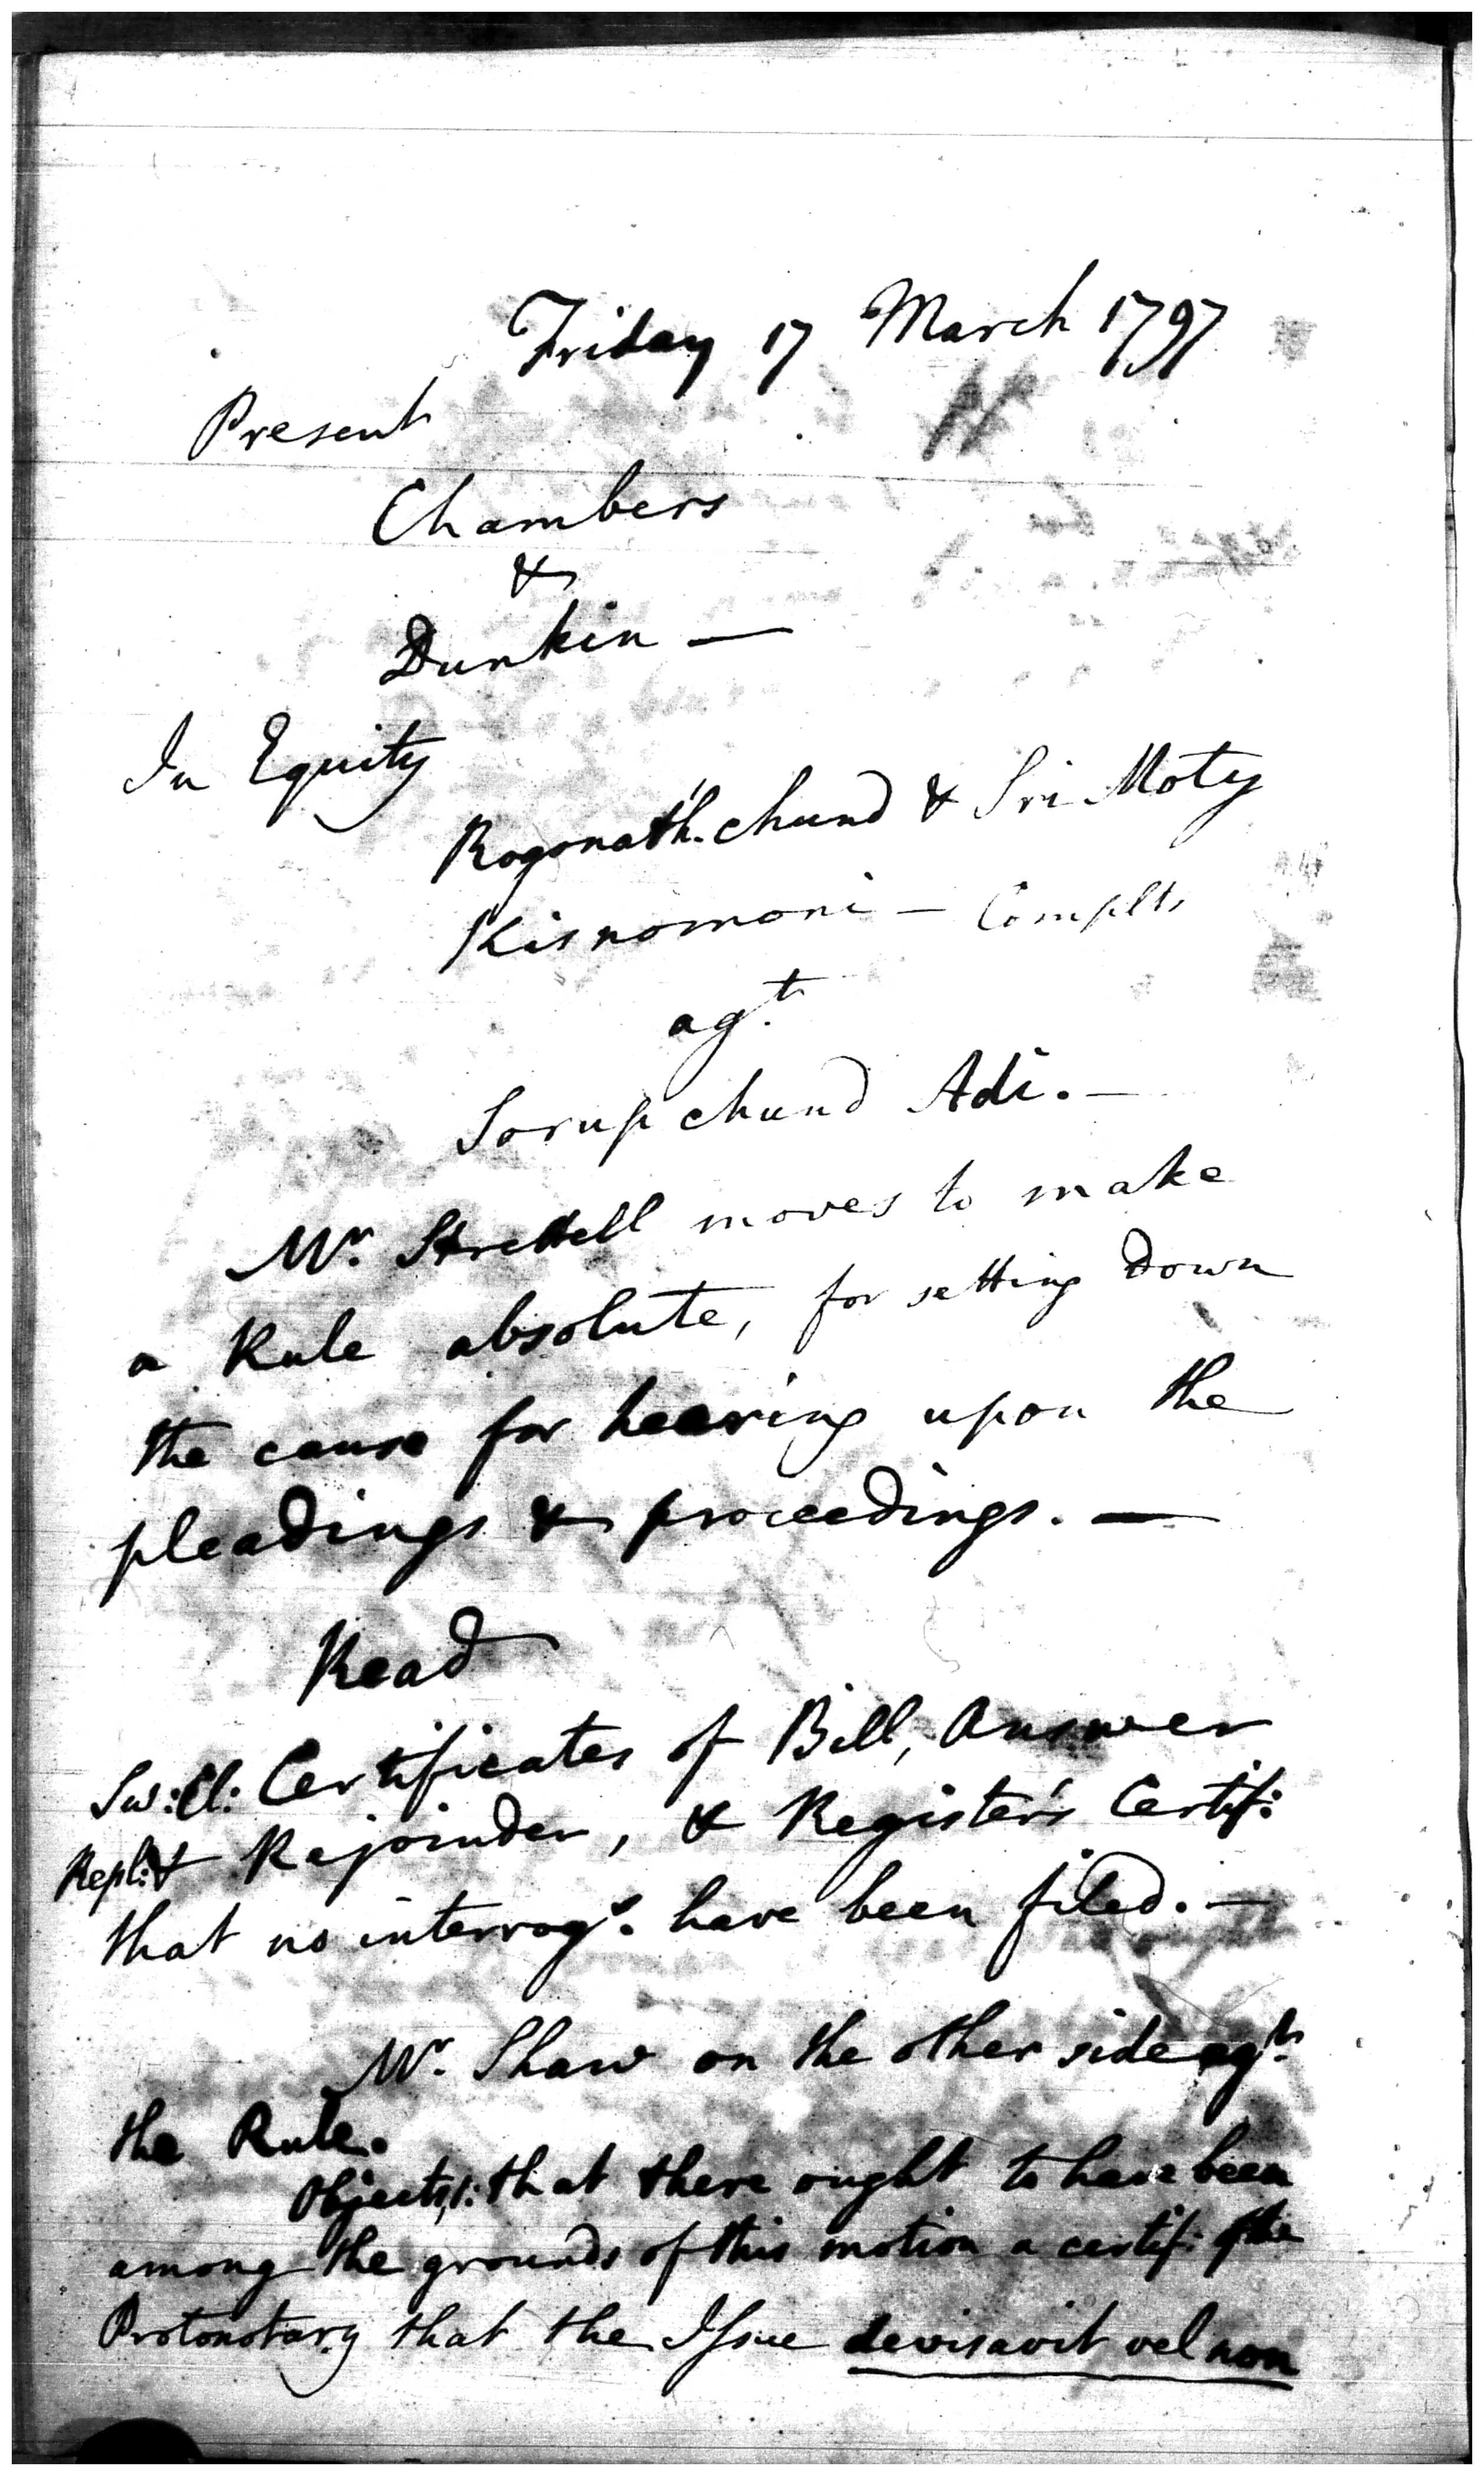 Friday 17 March 1797
Present
Chambers
&
Dunkin —
In Equity
Rogonath. chund & Sri Moty
Kisnomoni — Complts
agt.
Sorup chund Adi. —
Mr. Strettell moves to make
a Rule absolute, for setting down
the cause for hearing upon the
pleadings & proceedings. —
Read
Sw: Cl: Certificates of Bill, Answer
Repl: & Rejoinder, & Register's Certif:
that no interrogs. have been filed. —
Mr. Shaw on the other side agt.
the Rule.
Objects, 1: that there ought to have been
among the grounds of this motion a certif: of the
Protonotary that the Issue devisavit vel non